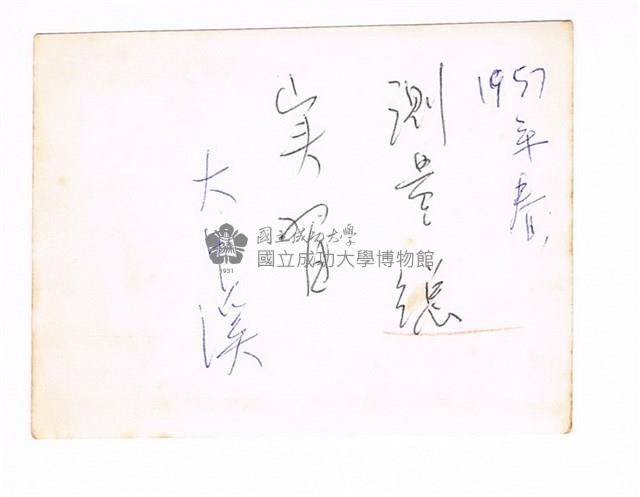 1957年春
測量總
実習
大甲溪
國立成功大學
國立成功大學博物館
1931